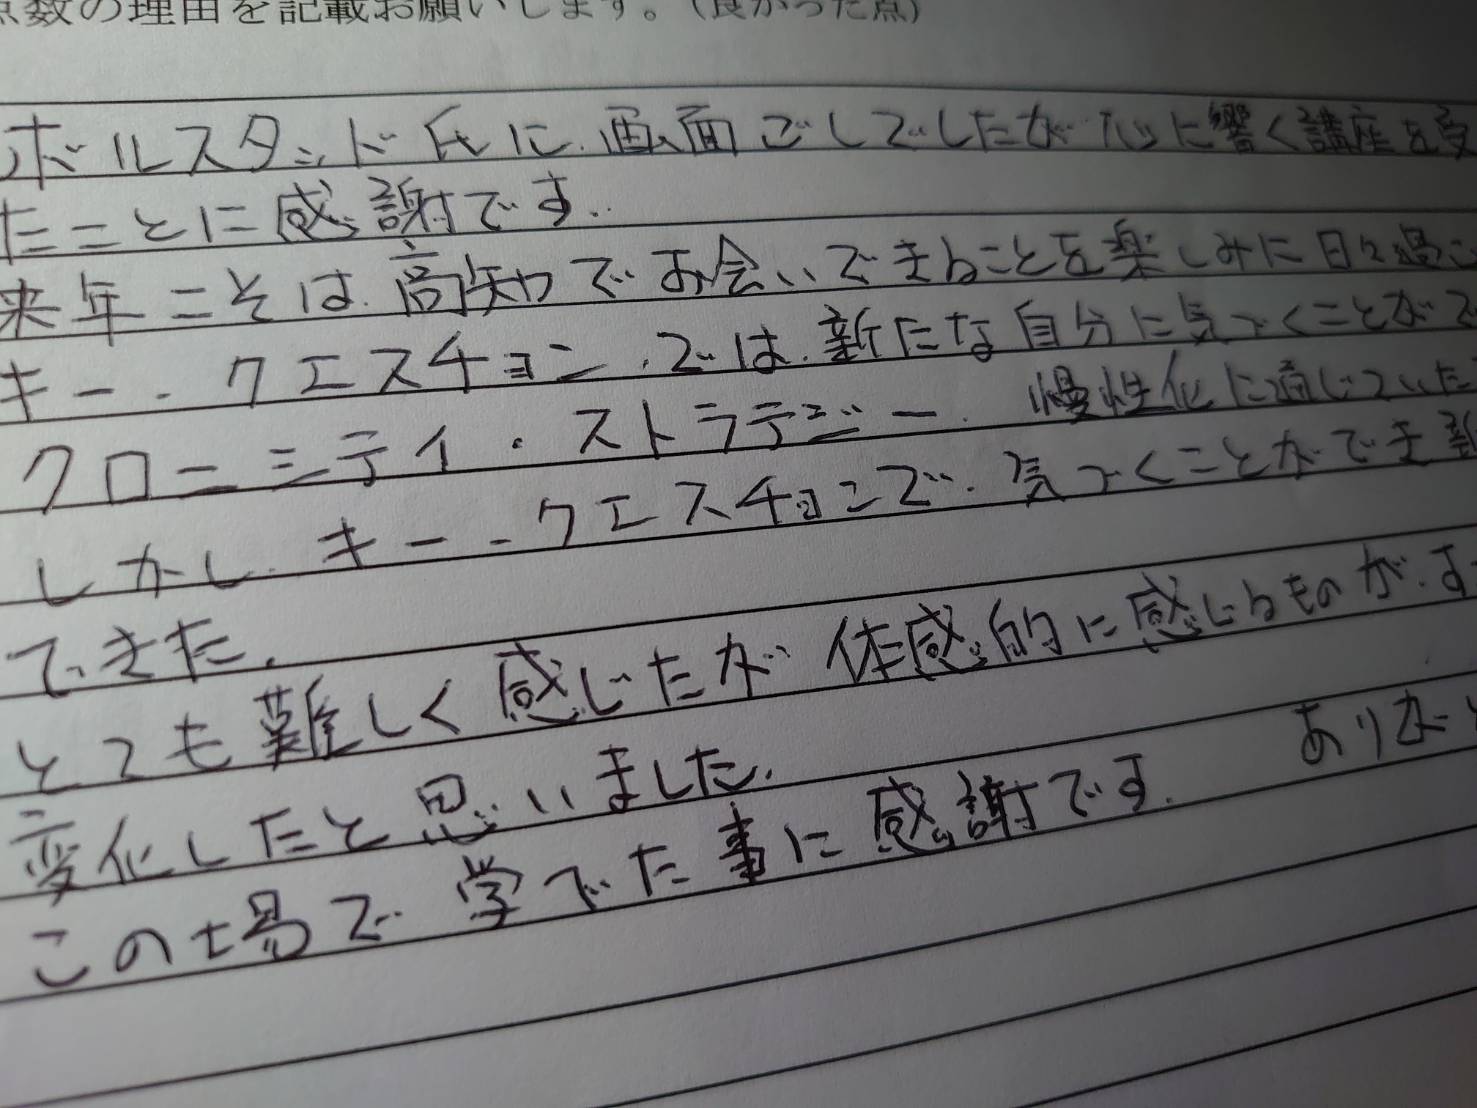 点数の理由を記載お願いします。(良かった点)
ボルスタッド氏に、画面ごしでしたが心に響く講座を受
たことに感謝です。
来年こそは、高知でお会いできることを楽しみに日々過ご
キー・クエスチョンでは、新たな自分に気づくことがで
クローニティ・ストラテジー、慢性化に通じていた
しかし、キー・クエスチョンで、気づくことができ
できた。
とても難しく感じたが体感的に感じるものが、す
変化したと思いました。
この場で学でた事に感謝です。 ありがと